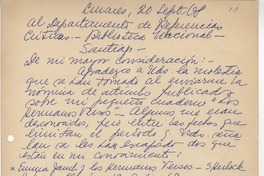 Linares, 20 Sept. 68
Al Departamento de Referencias
Críticas.- Biblioteca Nacional -
Santiago -
De mi mayor consideración: -
Agradezco a Uds. la molestia
que se han tomado al enviarme la
nómina de artículos publicados
sobre mi pequeño cuaderno "Los
Hermanos Pinos" - Algunos me eran
desconocidos, pues entre las fechas que
limitan el período q. Uds. señalan
se les han escapado dos que
están en mi conocimiento:
los Hermanos